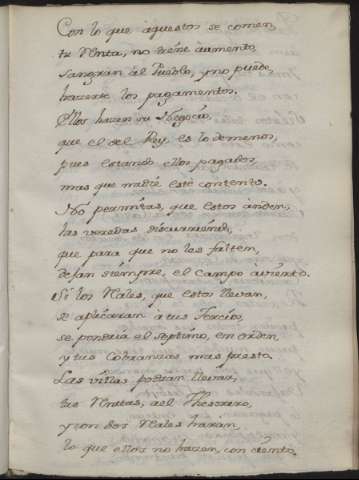 Con lo que aquestos se comen
tu Renta, no tiene aumento,
sangran al Pueblo, y no puede
hazerte los pagamentos.
Ellos hazen su Negocio,
que el del Rey es lo de menos,
pues estando ellos pagados,
mas que nadie esté contento.
No permitas, que estos anden,
las veredas discurriendo,
que para que no les falten,
dejan siempre, el campo avierto.
Si los Reales, que estos llevan,
se aplicaran á tus Tercios,
se pondria el septimo, en orden,
y tus Cobranzas mas presto.
Las villas podran llevar,
tus Rentas, al Thesorero,
y con dos Reales harán,
lo que ellos no hazen, con ciento.